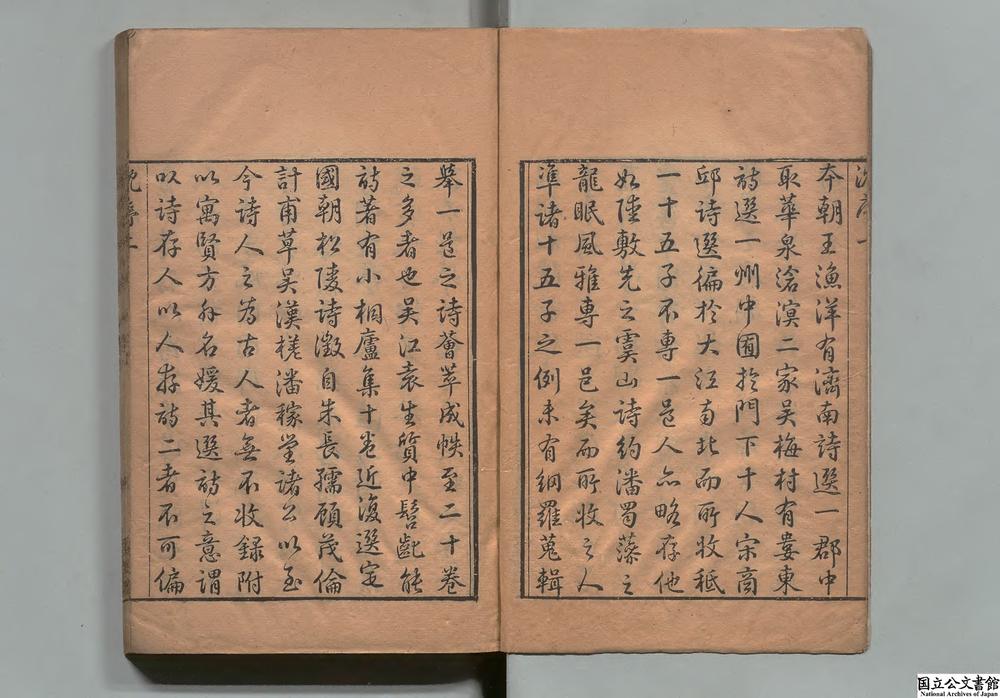 本朝王漁洋有濟南詩選一郡中
取華泉滄溟二家吳梅村有婁東
詩選一州中囿於門下十人宋商
邱詩選徧於大江南北而所收秪
一十五子不專一邑人亦略存他
如陸敷先之虞山詩約潘蜀藻之
龍眠風雅專一邑矣而所收之人
準諸十五子之例未有網羅蒐輯
舉一邑之詩薈萃成帙至二十卷
之多者也吳江袁生質中髫齔能
詩著有小桐廬集十卷近復選定
國朝松陵詩徵自朱長孺顧茂倫
計甫草吳漢槎潘稼堂諸公以至
今詩人之為古人者無不收錄附
以寓賢方外名媛其選詩之意謂
以詩存人以人存詩二者不可偏
国立公文書館
National Archives of Japan